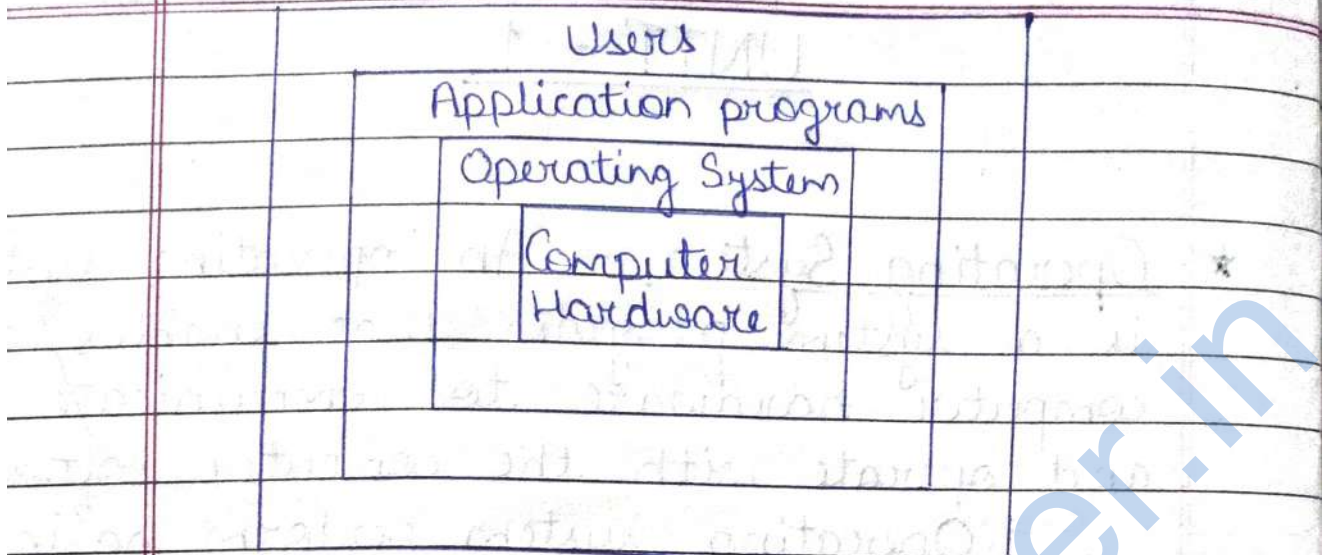 Users
Application programs
Operating System
Computer
Hardware
er.in